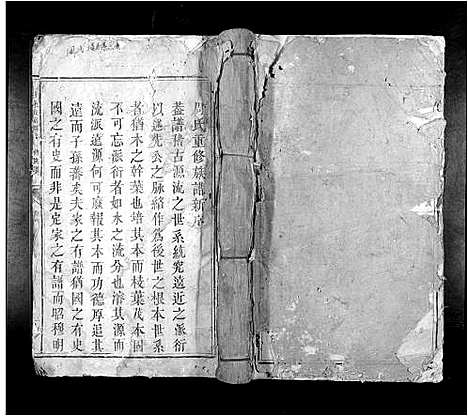 氏重修族譜新序
蓋譜稽古源流之世系究遠近之派衍
以遂先公之脉絡作爲後世之根本世系
者猶木之幹葉也培其本而枝葉茂本固
不可忘派衍者如水之流分也濬其源而
流派遠源何可廢報其本而功德厚追其
遠而子孫蕃矣夫家之有譜猶國之有史
國之有史而非是定家之有譜而昭穆明